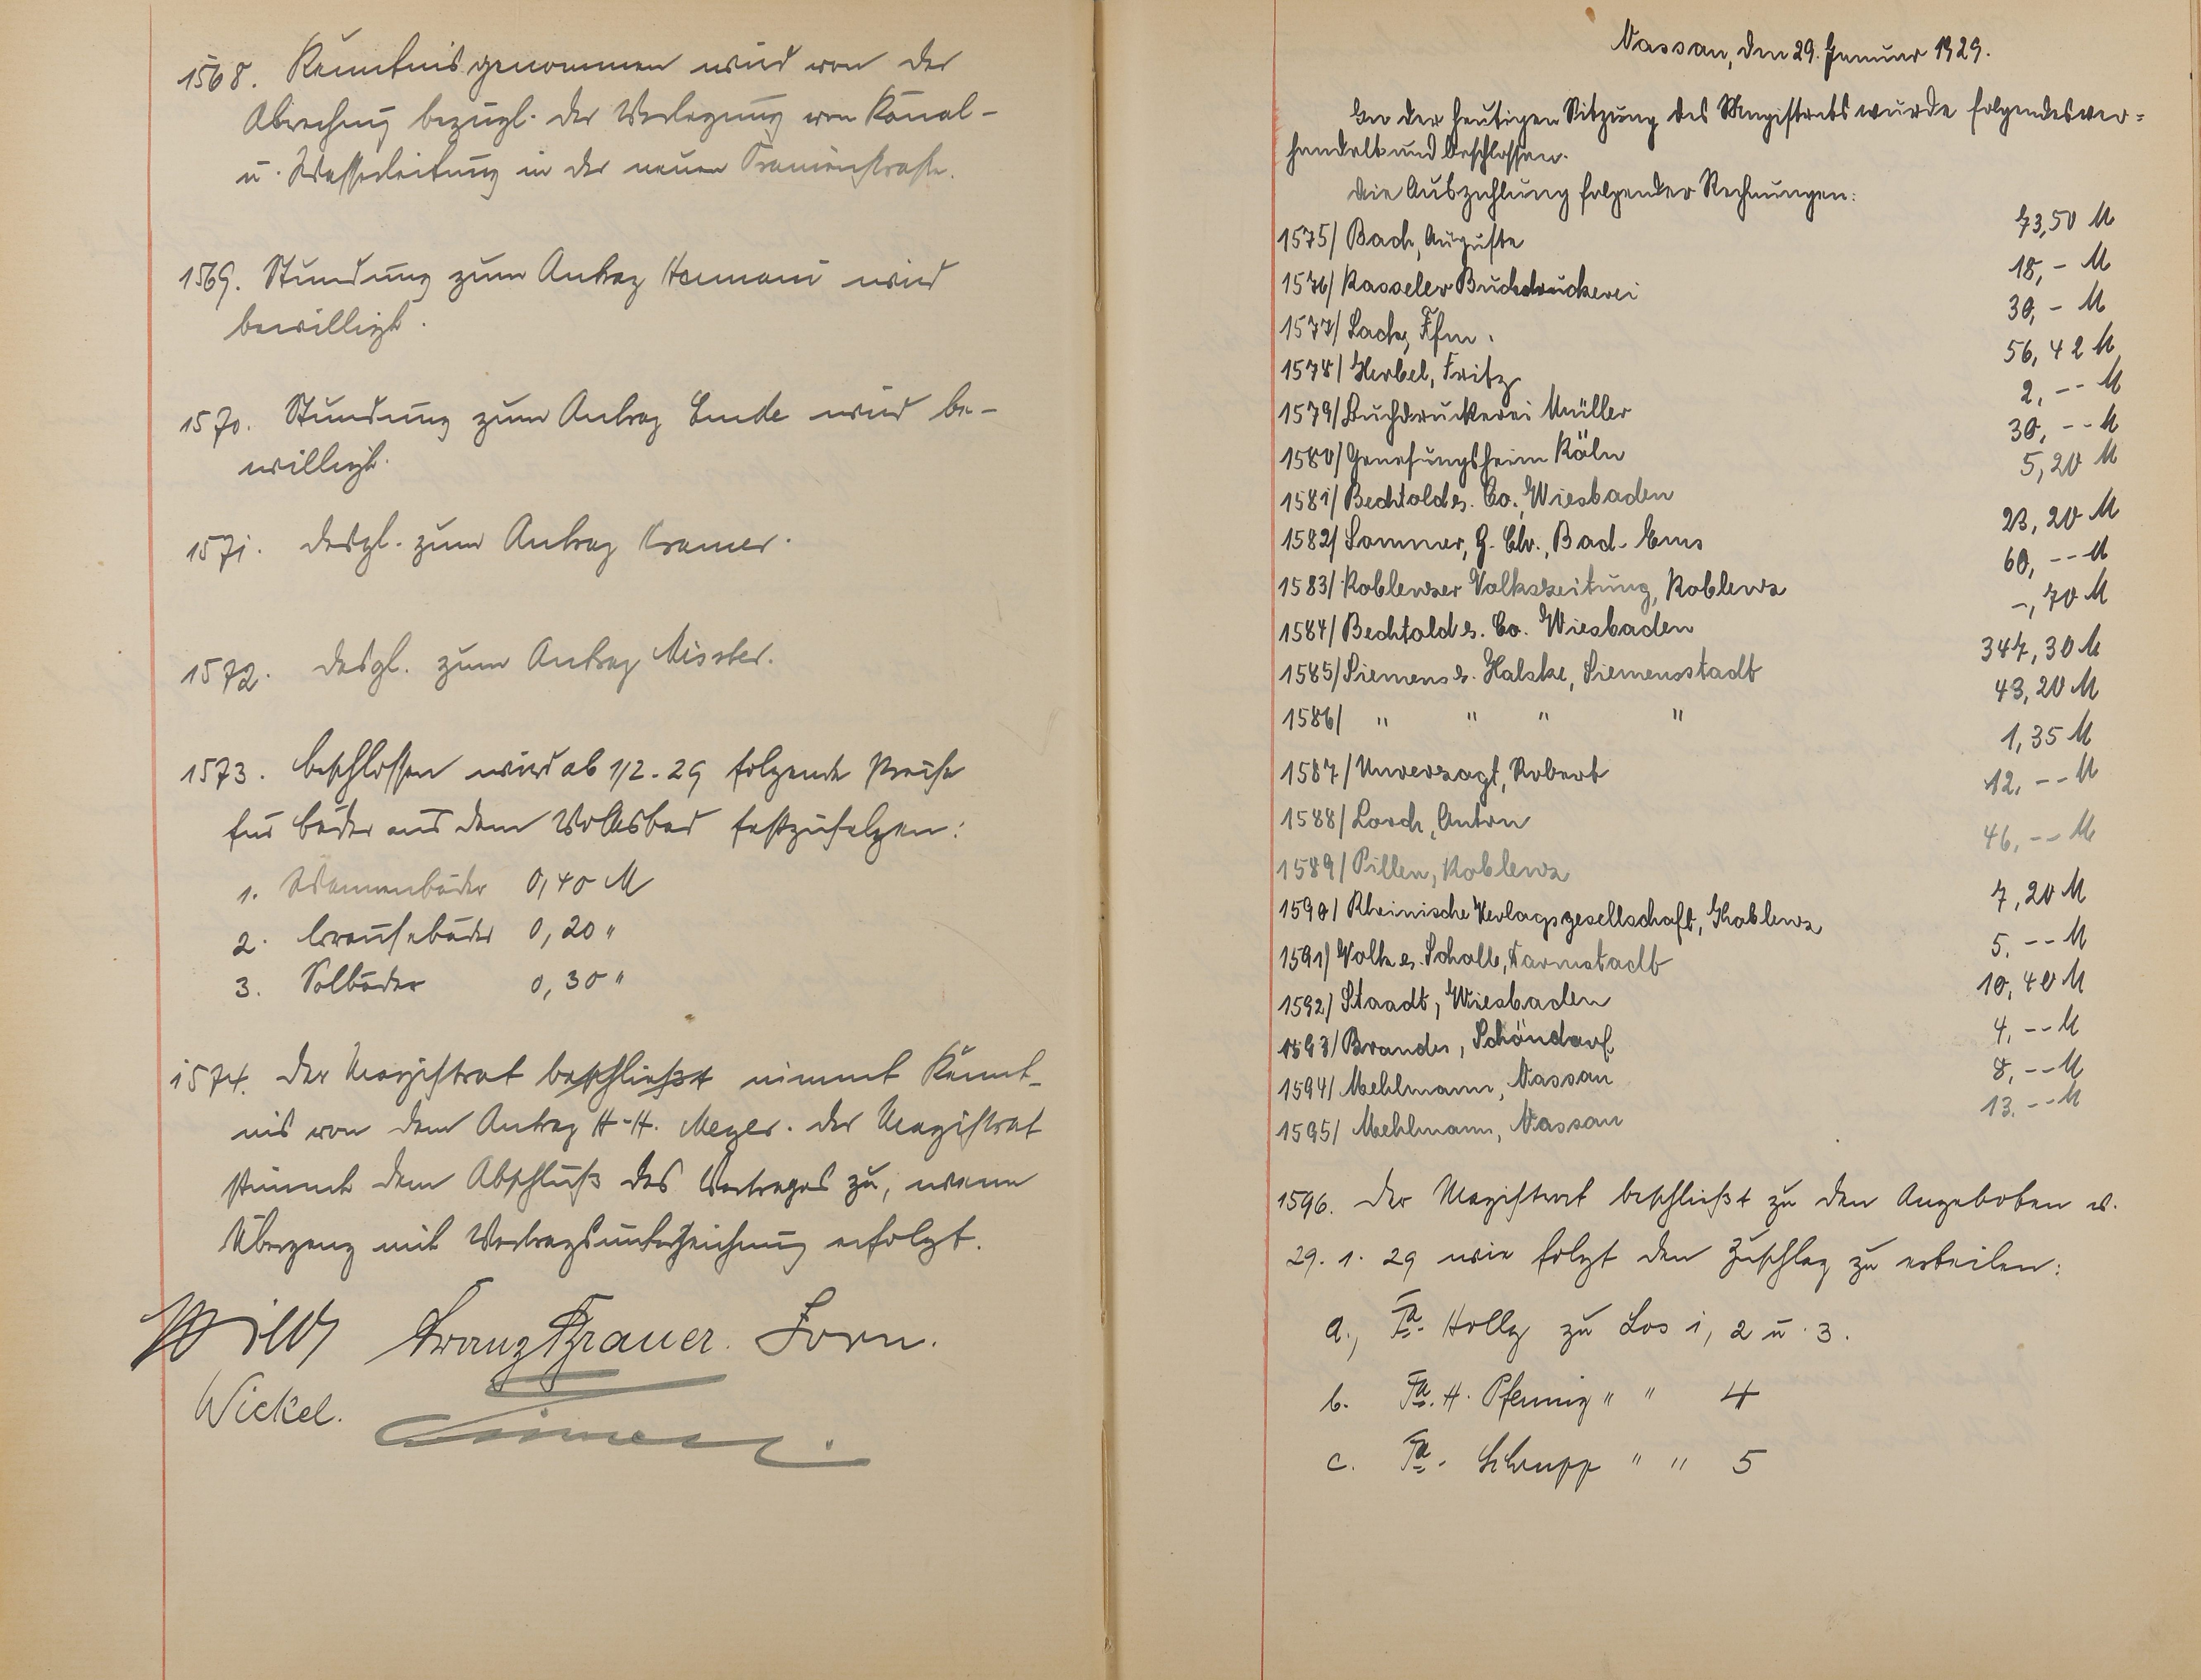 1568. Kenntnis genommen wird von der
Abrechnung bezügl. der Verlegung von Kanal-
u. Wasserleitung in der neuen Oranienstraße.
1569. Stundung zum Antrag Hermani wird
bewilligt.
1570. Stundung zum Antrag Linde wird be-
willigt.
1571. desgl. zum Antrag Kramer.
1572. desgl. zum Antrag Minster.
1573. Beschlossen wird ab 1/2. 29 folgende Preise
für Bäder aus dem Volksbad festzusetzen:
1. Wannenbäder 0,40 M
2. Brausebäder 0,20 "
3. Solbäder 0,30 "
1574. Der Magistrat beschließt nimmt Kennt-
nis von dem Antrag H.-H. Meyer. Der Magistrat
stimmt dem Abschluß des Vertrages zu, wenn
Übergang mit Vertragsunterzeichnung erfolgt.
Franz Brauer. Forn.
Wickel.
Nassau, den 29. Januar 1929.
In der heutigen Sitzung des Magistrats wurde folgendes ver=
handelt und beschlossen.
Die Auszahlung folgender Rechnungen:
1575/ Bach, Auguste 73,50 M
1576/ Kasseler Buchdruckerei 18,- M
1577/ Lack, Ffm. 30,- M
1578/ Herbel, Fritz 56,42 M
1579/ Buchdruckerei Müller 2,-- M
1580/ Genesungsheim Köln 30,-- M
1581/ Bechtold & Co., Wiesbaden 5,20 M
1582/ Sommer, G. Chr., Bad-Ems 23,20 M
1583/ Koblenzer Volkszeitung, Koblenz 60,-- M
1584/ Bechtold & Co. Wiesbaden -,70 M
1585/ Siemens & Halske, Siemensstadt 347,30 M
1586/ " " " " 43,20 M
1587/ Unverzagt, Robert 1,35 M
1588/ Lorch, Anton 12,-- M
1589/ Pillen, Koblenz 46,-- M
1590/ Rheinische Verlagsgesellschaft, Koblenz 7,20 M
1591/ Volk & Scholl, Darmstadt 5,-- M
1592/ Staadt, Wiesbaden 10,40 M
1593/ Brandes, Schöndorf 4,-- M
1594/ Mehlmann, Nassau 8,-- M
1595/ Mehlmann, Nassau 13,-- M
1596. Der Magistrat beschließt zu den Angeboten v.
29. 1. 29 wie folgt den Zuschlag zu erteilen:
a., Fa. Holly zu Los 1, 2 u. 3.
b. Fa. H. Pfennig " " 4
c. Fa. Schrupp " " 5